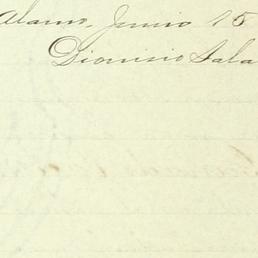 Alamo, Junio 15
Dionisio Sala